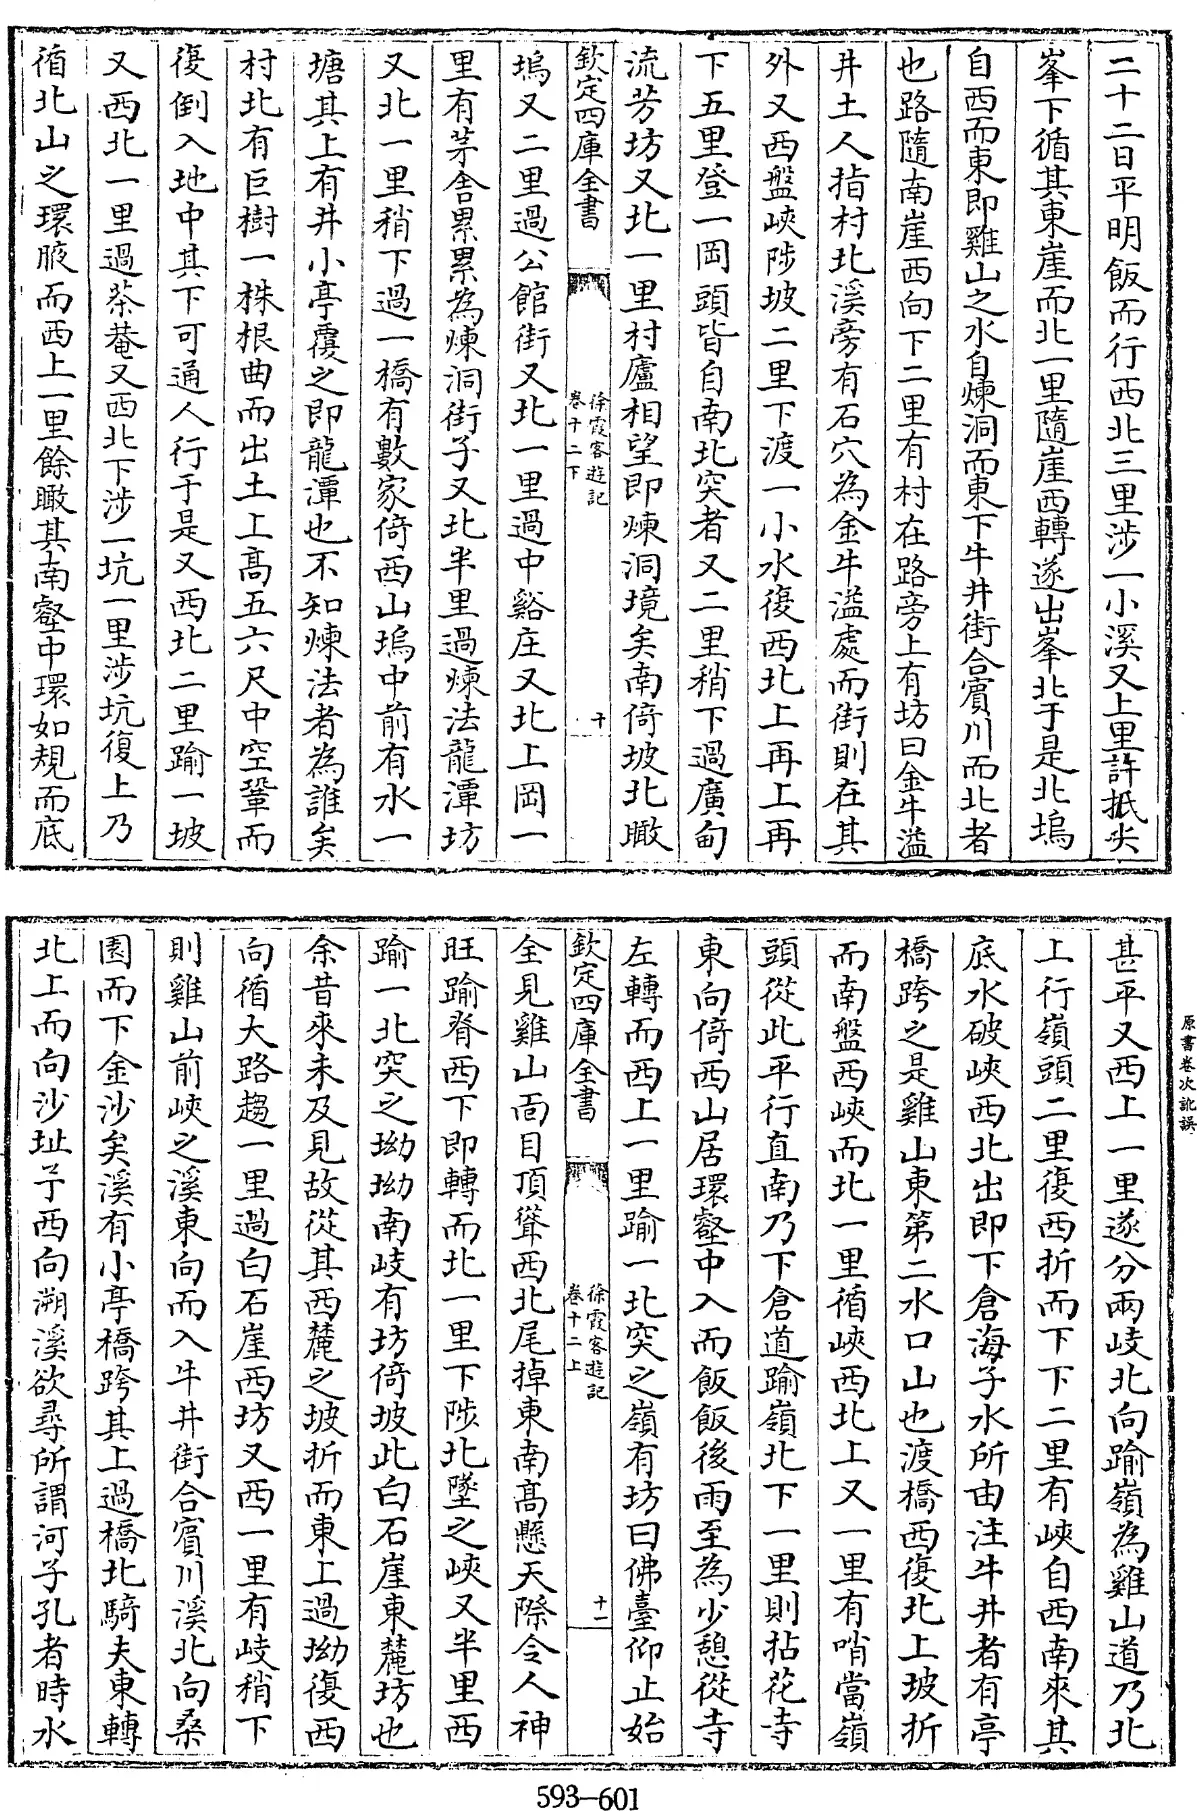 二十二日平明飯而行西北三里涉一小溪又上里許抵尖
峯下循其東崖而北一里隨崖西轉遂出峯北于是北塢
自西而東即雞山之水自煉洞而東下牛井街合賓川而北者
也路隨南崖西向下二里有村在路旁上有坊曰金牛溢
井土人指村北溪旁有石穴為金牛溢處而街則在其
外又西盤峽陟坡二里下渡一小水復西北上再上再
下五里登一岡頭皆自南北突者又二里稍下過廣甸
流芳坊又北一里村廬相望即煉洞境矣南倚坡北瞰
欽定四庫全書
徐霞客遊記
卷十二下
十
塢又二里過公館街又北一里過中谿庄又北上岡一
里有茅舍累累為煉洞街子又北半里過煉法龍潭坊
又北一里稍下過一橋有數家倚西山塢中前有水一
塘其上有井小亭覆之即龍潭也不知煉法者為誰矣
村北有巨樹一株根曲而出土上高五六尺中空鞏而
復倒入地中其下可通人行于是又西北二里踰一坡
又西北一里過茶菴又西北下涉一坑一里涉坑復上乃
循北山之環腋而西上一里餘瞰其南壑中環如規而底
甚平又西上一里遂分兩岐北向踰嶺為雞山道乃北
上行嶺頭二里復西折而下下二里有峽自西南來其
底水破峽西北出即下倉海子水所由注牛井者有亭
橋跨之是雞山東第二水口山也渡橋西復北上坡折
而南盤西峽而北一里循峽西北上又一里有哨當嶺
頭從此平行直南乃下倉道踰嶺北下一里則拈花寺
東向倚西山居環壑中入而飯飯後雨至為少憩從寺
左轉而西上一里踰一北突之嶺有坊曰佛臺仰止始
欽定四庫全書
徐霞客遊記
卷十二上
十一
全見雞山面目頂聳西北尾掉東南高懸天際令人神
旺踰脊西下即轉而北一里下陟北墜之峽又半里西
踰一北突之坳坳南岐有坊倚坡此白石崖東麓坊也
余昔來未及見故從其西麓之坡折而東上過坳復西
向循大路趨一里過白石崖西坊又西一里有岐稍下
則雞山前峽之溪東向而入牛井街合賓川溪北向桑
園而下金沙矣溪有小亭橋跨其上過橋北騎夫東轉
北上而向沙址予西向溯溪欲尋所謂河子孔者時水
原書卷次訛誤
593–601